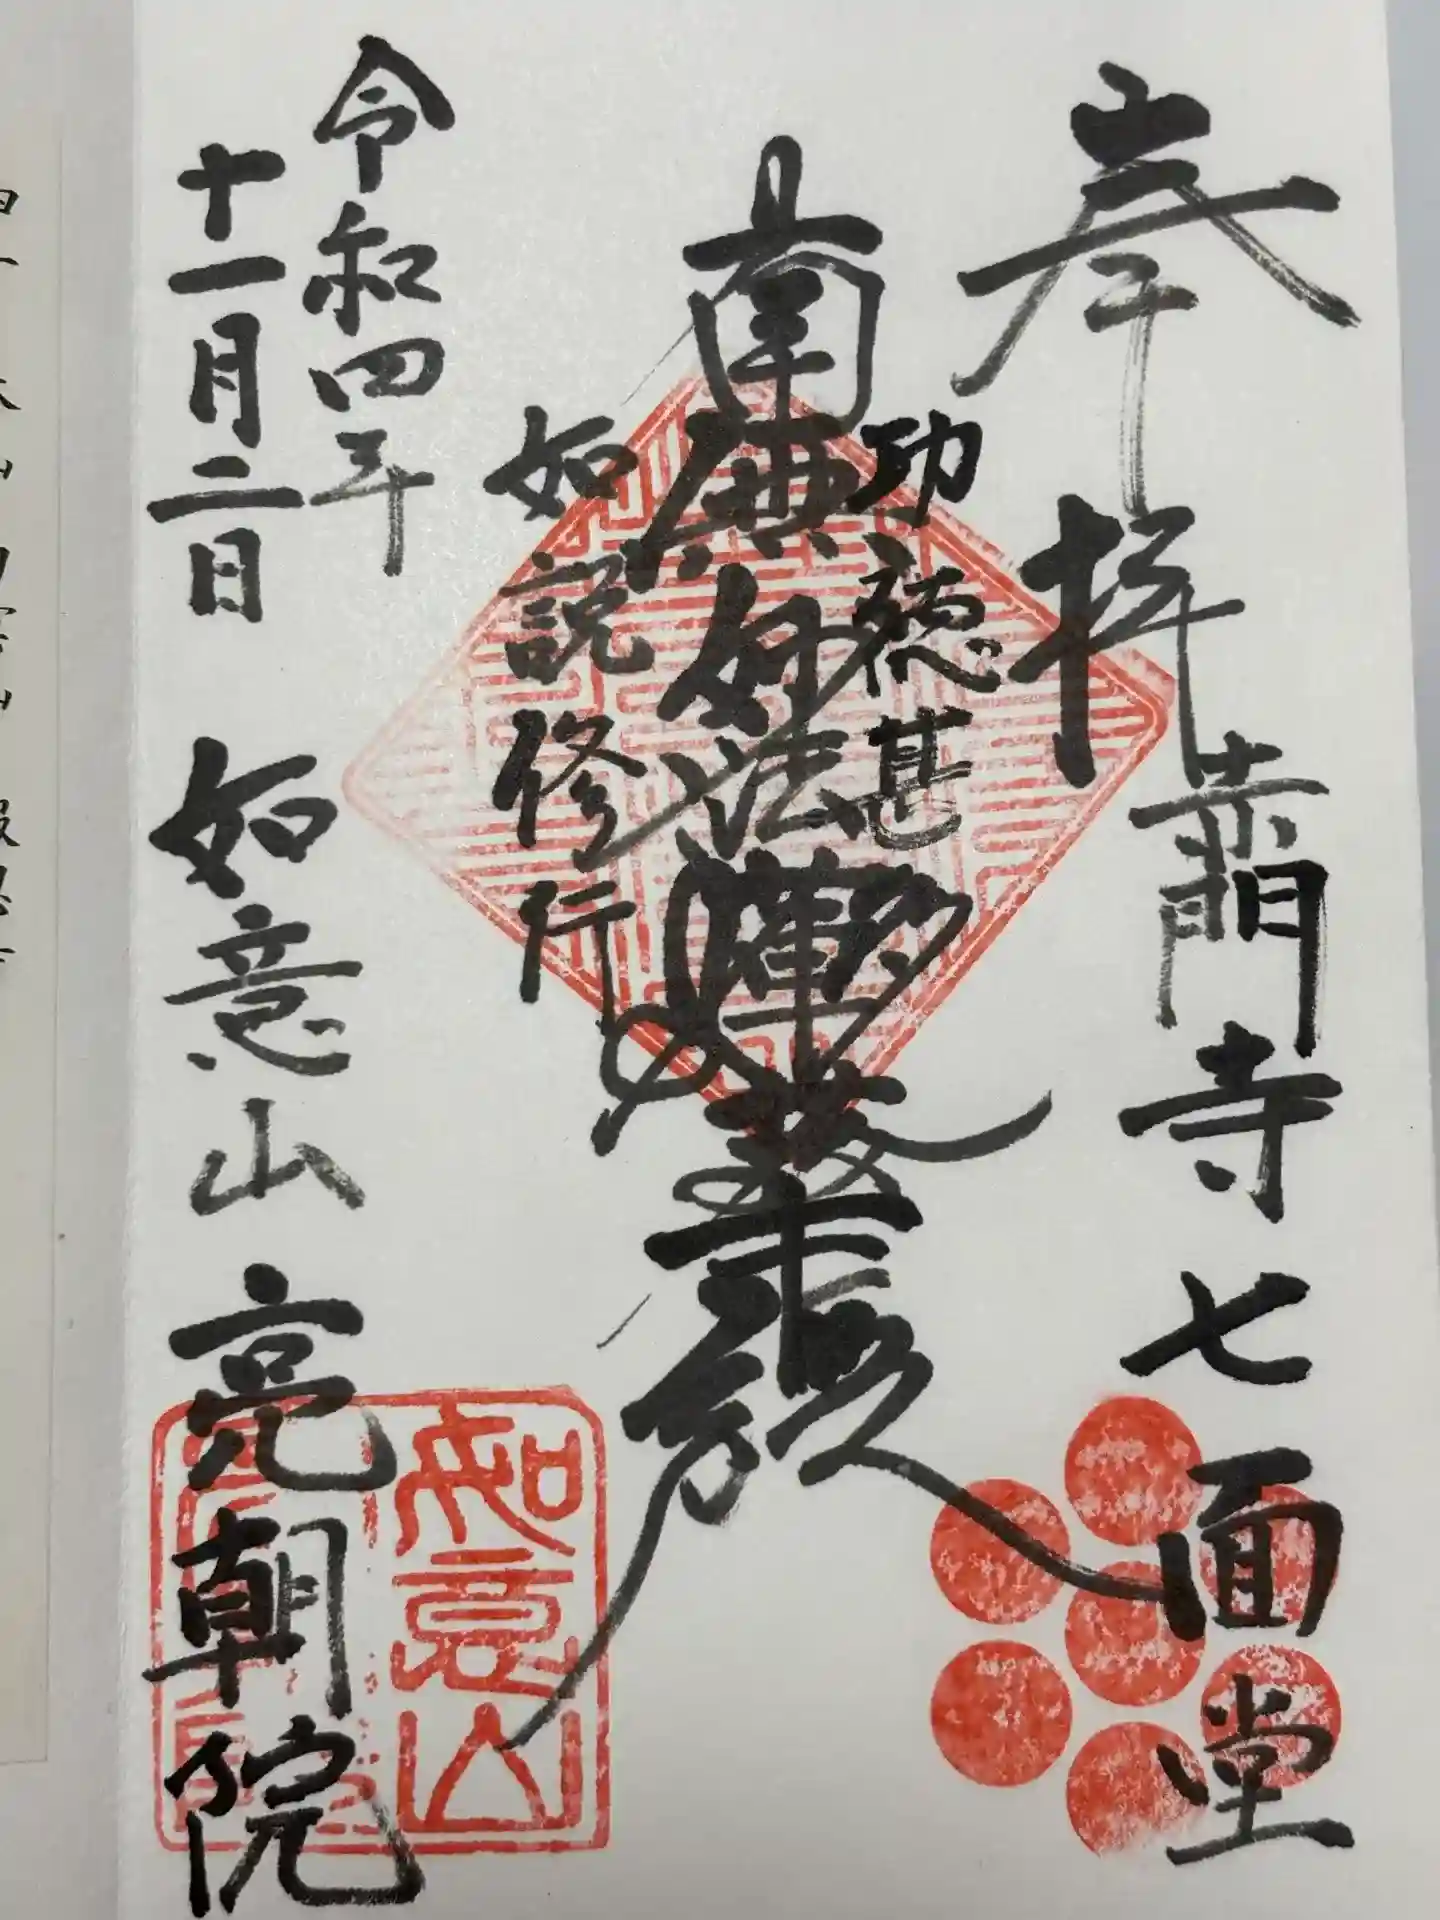 奉拝
高田寺七面堂
功徳甚多
南無妙法蓮華経
如説修行
令和四年
十一月二日
如意山 亮朝院
如意山